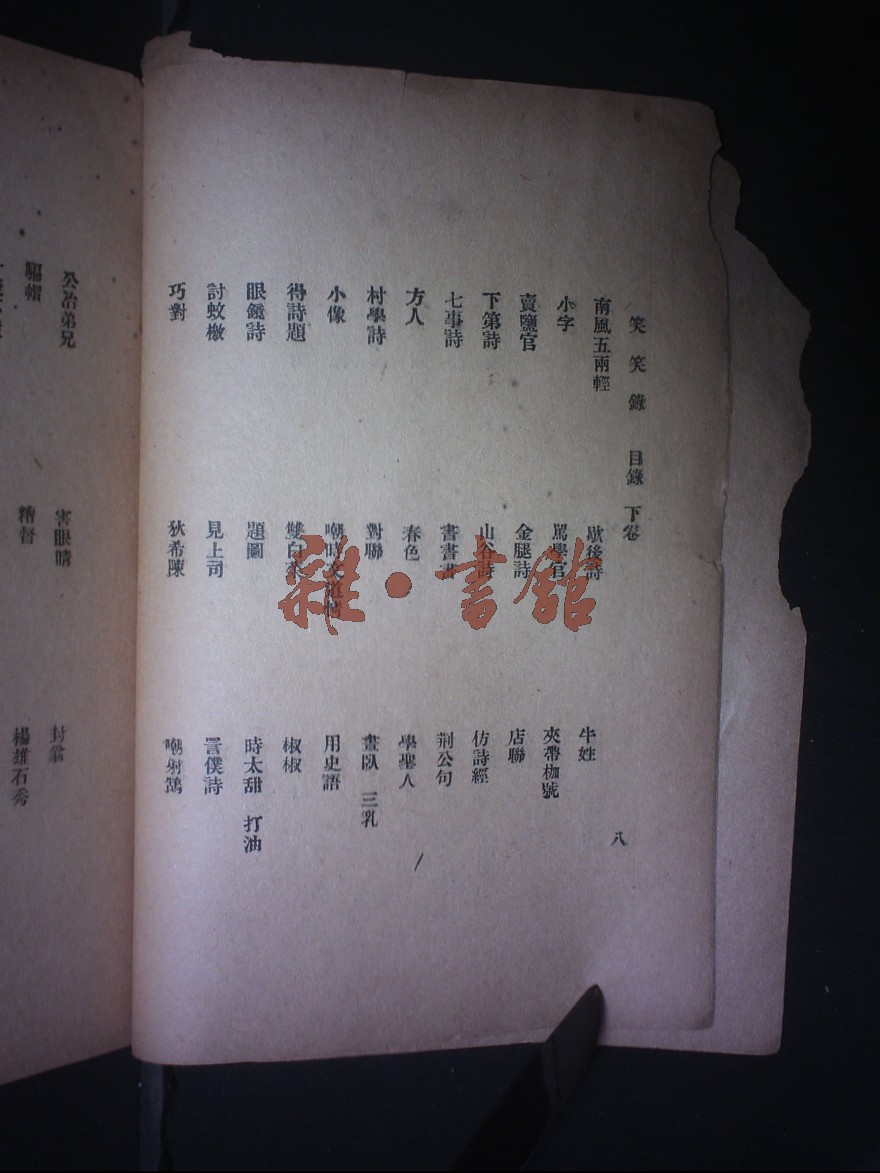 笑笑錄 目錄 下卷 八
南風五兩輕 歇後詩 牛姓
小字 罵學官 夾帶枷號
賣鹽官 金腿詩 店聯
下第詩 山谷詩 仿詩經
七事詩 書書書 荆公句
方人 春色 學聖人
村學詩 對聯 晝臥 三乳
小像 嘲時文 用史語
得詩題 雙白 椒椒
眼鏡詩 題圖 時太甜 打油
討蚊檄 見上司 詈僕詩
巧對 狄希陳 嘲射鵠
公冶弟兄 害眼睛 封翁
騙帽 精督 楊雄石秀
雜·書館